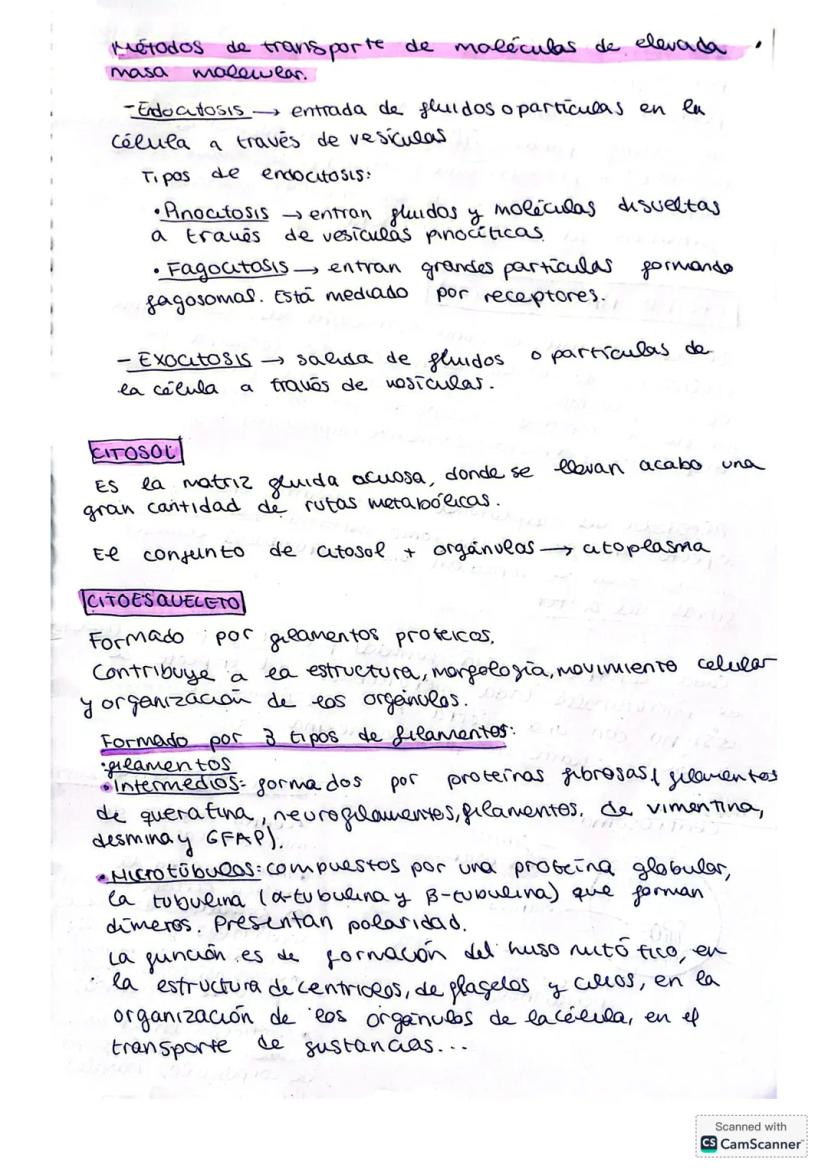 Métodos de transporte de moléculas de elevada
masa molecular.
-Endocitosis → entrada de fluidos o partículas en la
célula a través de vesículas
Tipos de endocitosis:
•Pinocitosis → entran fluidos y moléculas disueltas
a través de vesículas pinocíticas.
•Fagocitosis → entran grandes partículas formando
fagosomal. Está mediado por receptores.
- Exocitosis → salida de fluidos o partículas de
la célula a través de vesículas.
CITOSOL
Es la matriz fluida acuosa, donde se llevan acabo una
gran cantidad de rutas metabólicas.
El conjunto de citosol + orgánulos → citoplasma
CITOESQUELETO
Formado por filamentos proteicos.
Contribuye a la estructura, morfología, movimiento celular
y organización de los orgánulos.
Formado por 3 tipos de filamentos:
•filamentos
•Intermedios= formados por proteínas fibrosas ( filamentos
de queratina, neurofilamentos, filamentos, de vimentina,
desmina y GFAP).
•Microtúbulos: compuestos por una proteína globular,
la tubulina (α-tubulina y β-tubulina) que forman
dímeros. Presentan polaridad.
La función es de formación del huso mitótico, en
la estructura de centriolos, de flagelos y cilios, en la
organización de los orgánulos de la célula, en el
transporte de sustancias...
Scanned with
CS CamScanner